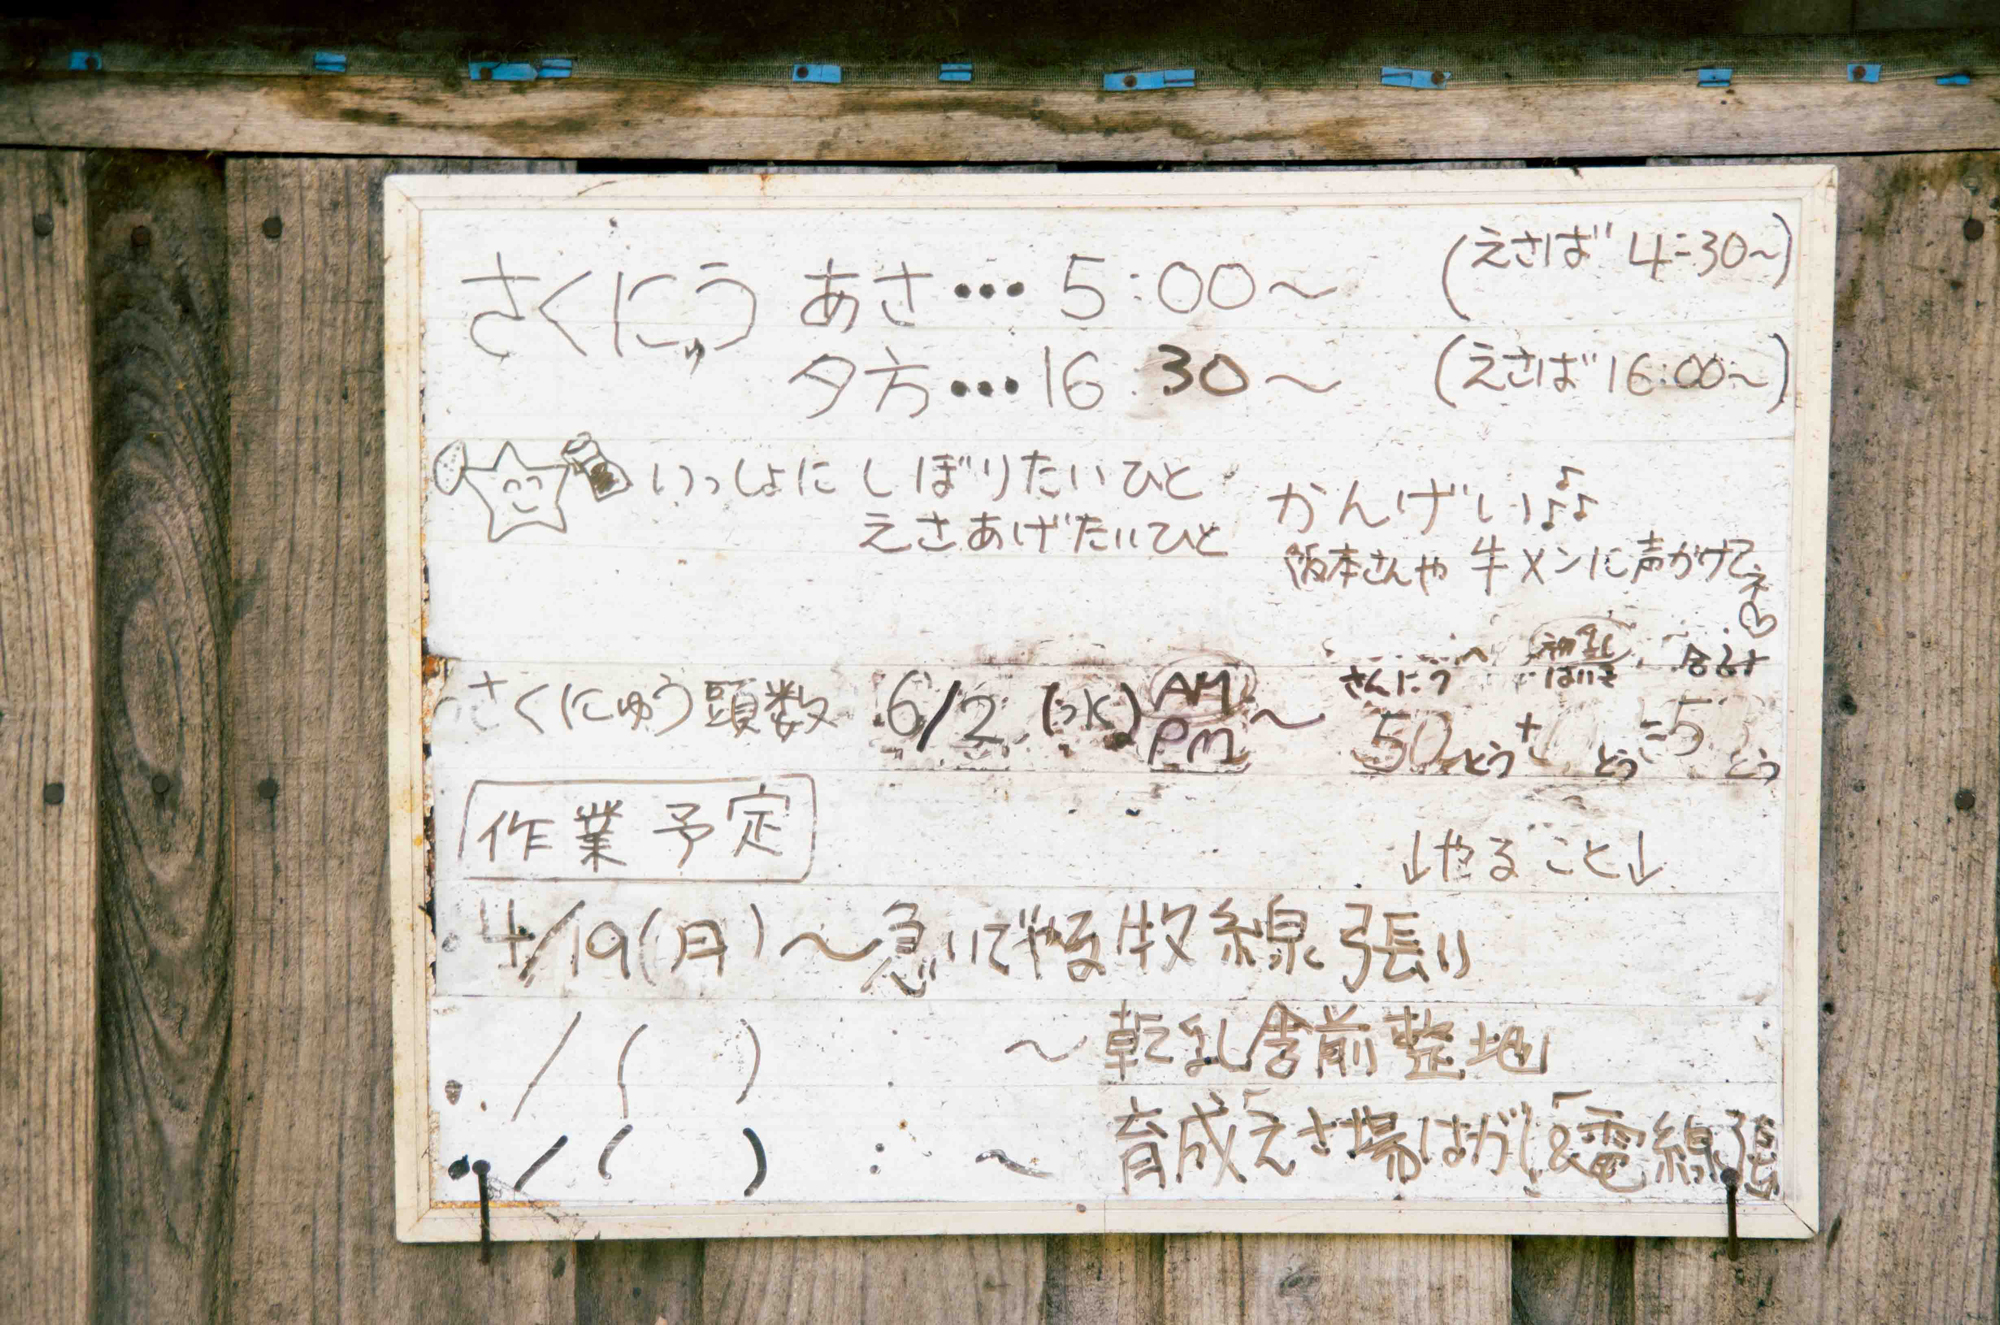 さくにゅう あさ… 5:00〜 (えさば 4:30〜)
夕方…16:30〜 (えさば 16:00〜)
いっしょに しぼりたいひと
えさあげたいひと
かんげい♪♪♪
阪本さんや 牛メンに声かけてネ♡
さんにう 初乳 はいき 合計
さくにゅう頭数 6/2 (水) AM PM 〜 50とう+ とう=5 とう
作業予定
↓やること↓
4/19(月)〜急いでやる牧線張り
/ ( ) : 〜 乾乳舎前整地
/ ( ) : 〜 育成えさ場はがし&電線張